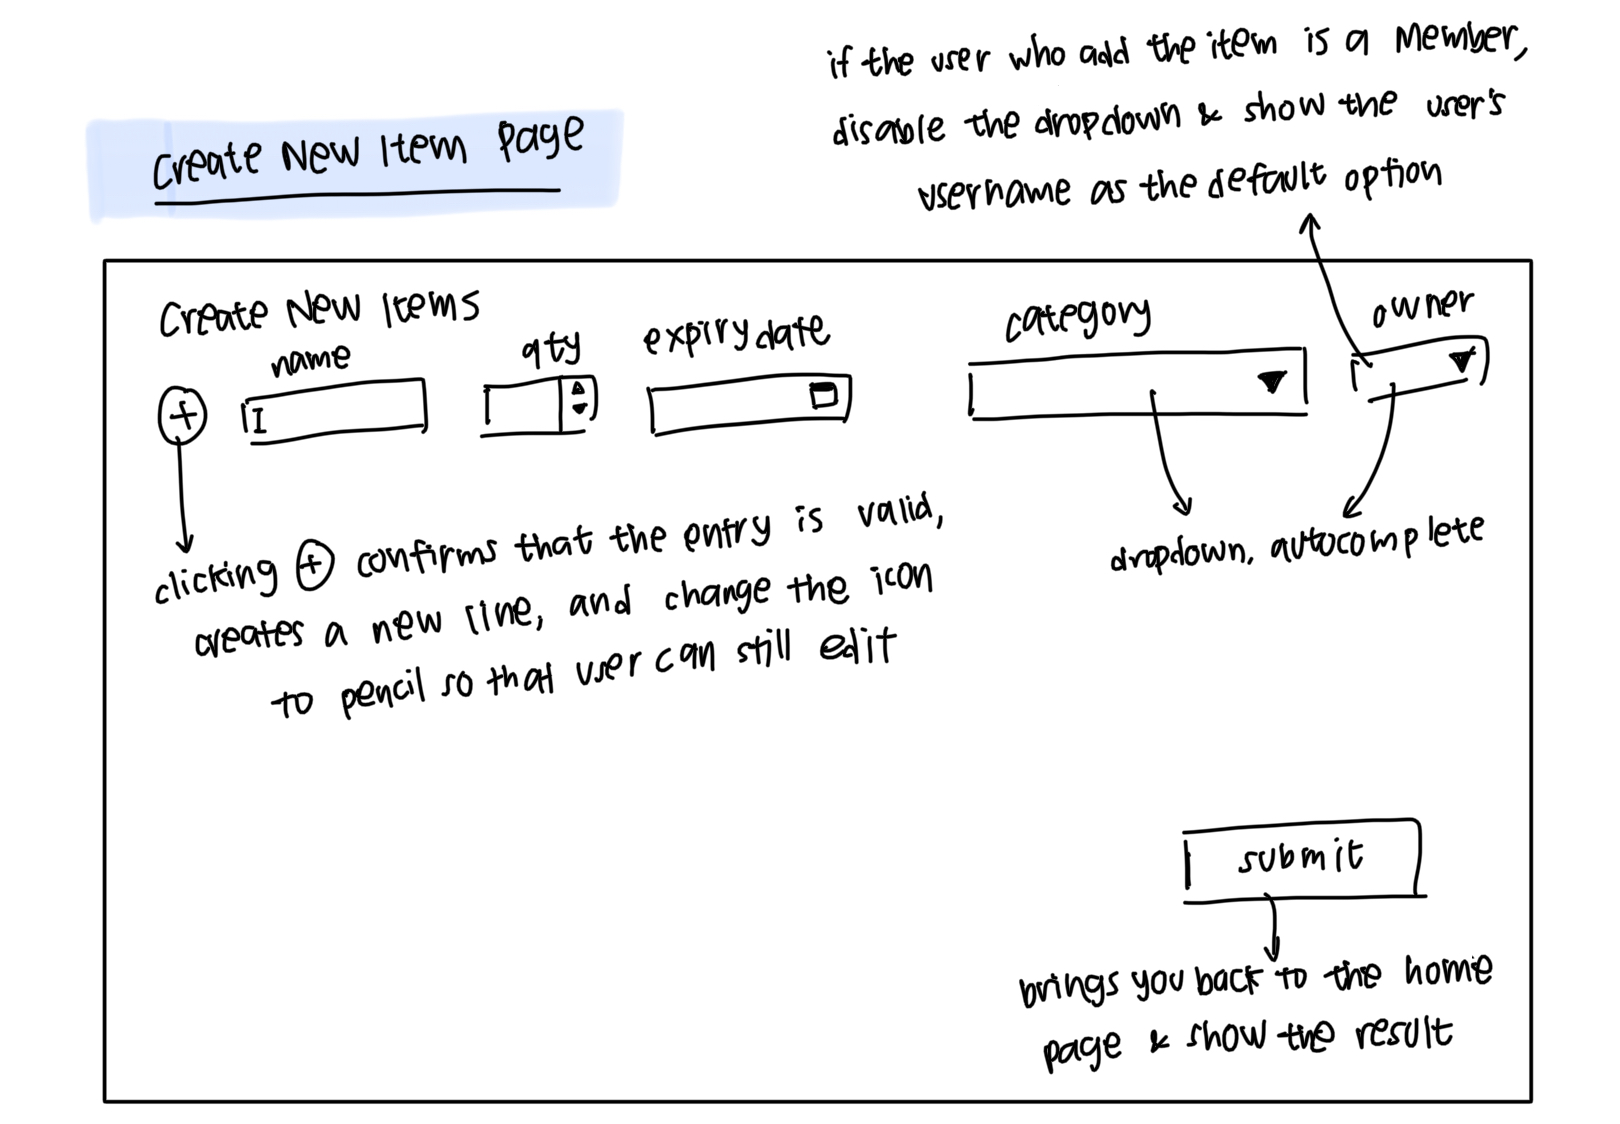 if the user who add the item is a member,
disable the dropdown & show the user's
username as the default option
Create New Item Page
Create New Items
name
qty
expiry date
category
owner
+
I
clicking + confirms that the entry is valid,
creates a new line, and change the icon
to pencil so that user can still edit
dropdown, autocomplete
submit
brings you back to the home
page & show the result